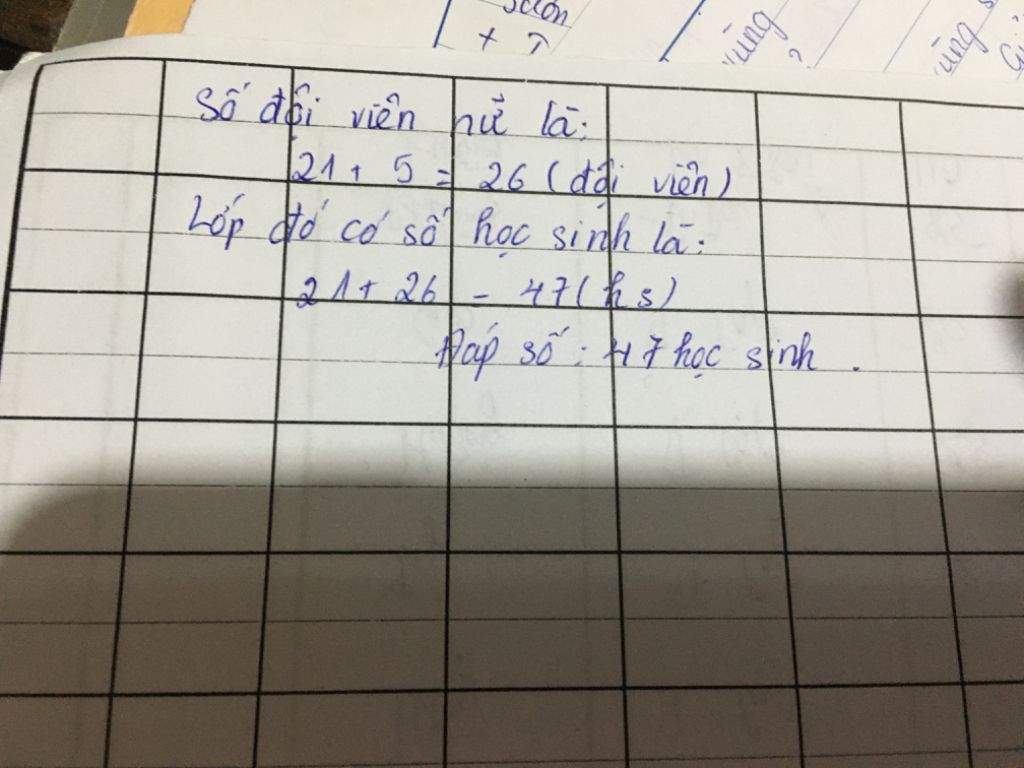 +
vùng
?
vùng
Số đội viên nữ là:
21 + 5 = 26 (đội viên)
Lớp đó có số học sinh là:
21 + 26 = 47 (hs)
Đáp số: 47 học sinh.